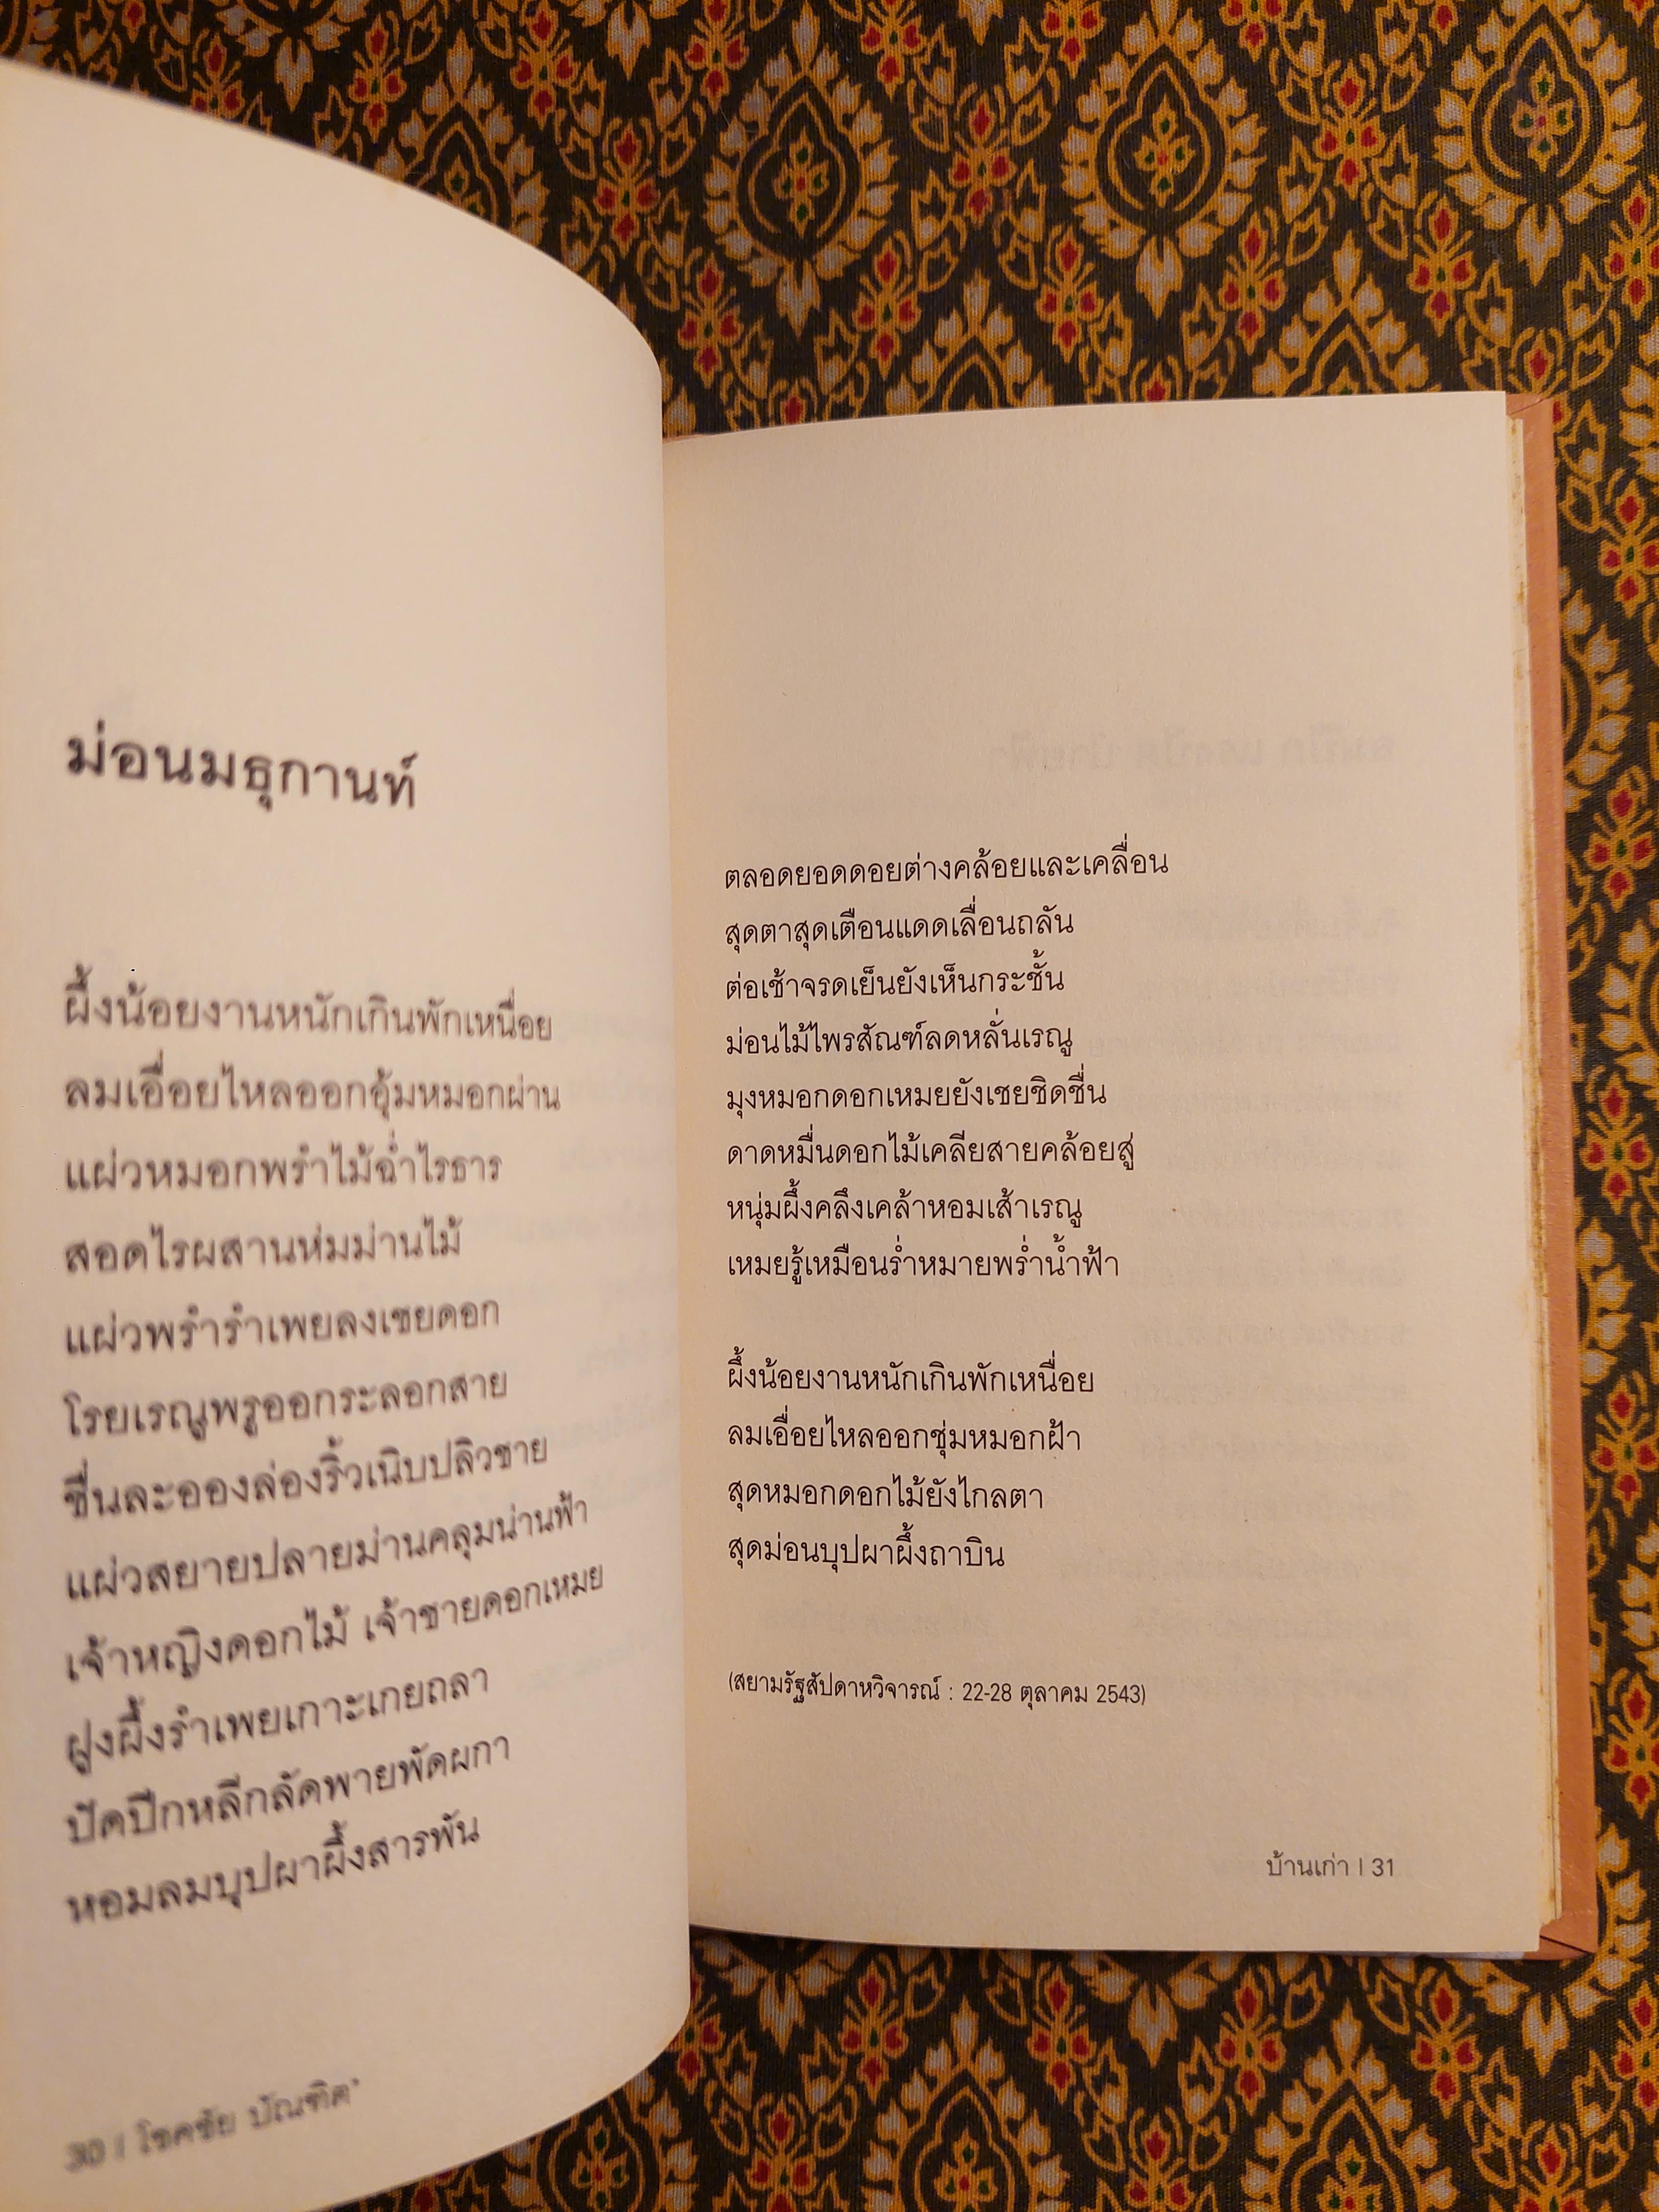 ม่อนมธุกานท์
ผึ้งน้อยงานหนักเกินพักเหนื่อย
ลมเอื่อยไหลออกอุ้มหมอกผ่าน
แผ่วหมอกพรำไม้ฉ่ำไรธาร
สอดไรผสานห่มม่านไม้
แผ่วพรำรำเพยลงเชยดอก
โรยเรณูพรูออกระลอกสาย
ชื่นละอองล่องริ้วเนิบปลิวชาย
แผ่วสยายปลายม่านคลุมน่านฟ้า
เจ้าหญิงดอกไม้ เจ้าชายดอกเหมย
ฝูงผึ้งรำเพยเกาะเกยถลา
ปัดปีกหลีกลัดพายพัดผกา
หอมลมบุปผาผึ้งสารพัน
30 | โชคชัย บัณฑิต'
ตลอดยอดดอยต่างคล้อยและเคลื่อน
สุดตาสุดเตือนแดดเลื่อนถลัน
ต่อเช้าจรดเย็นยังเห็นกระชั้น
ม่อนไม้ไพรสัณฑ์ลดหลั่นเรณู
มุงหมอกดอกเหมยยังเชยชิดชื่น
ดาดหมื่นดอกไม้เคลียสายคล้อยสู่
หนุ่มผึ้งคลึงเคล้าหอมเส้าเรณู
เหมยรู้เหมือนร่ำหมายพร่ำน้ำฟ้า
ผึ้งน้อยงานหนักเกินพักเหนื่อย
ลมเอื่อยไหลออกชุ่มหมอกฝ้า
สุดหมอกดอกไม้ยังไกลตา
สุดม่อนบุปผาผึ้งถาบิน
(สยามรัฐสัปดาหวิจารณ์ : 22-28 ตุลาคม 2543)
บ้านเก่า | 31